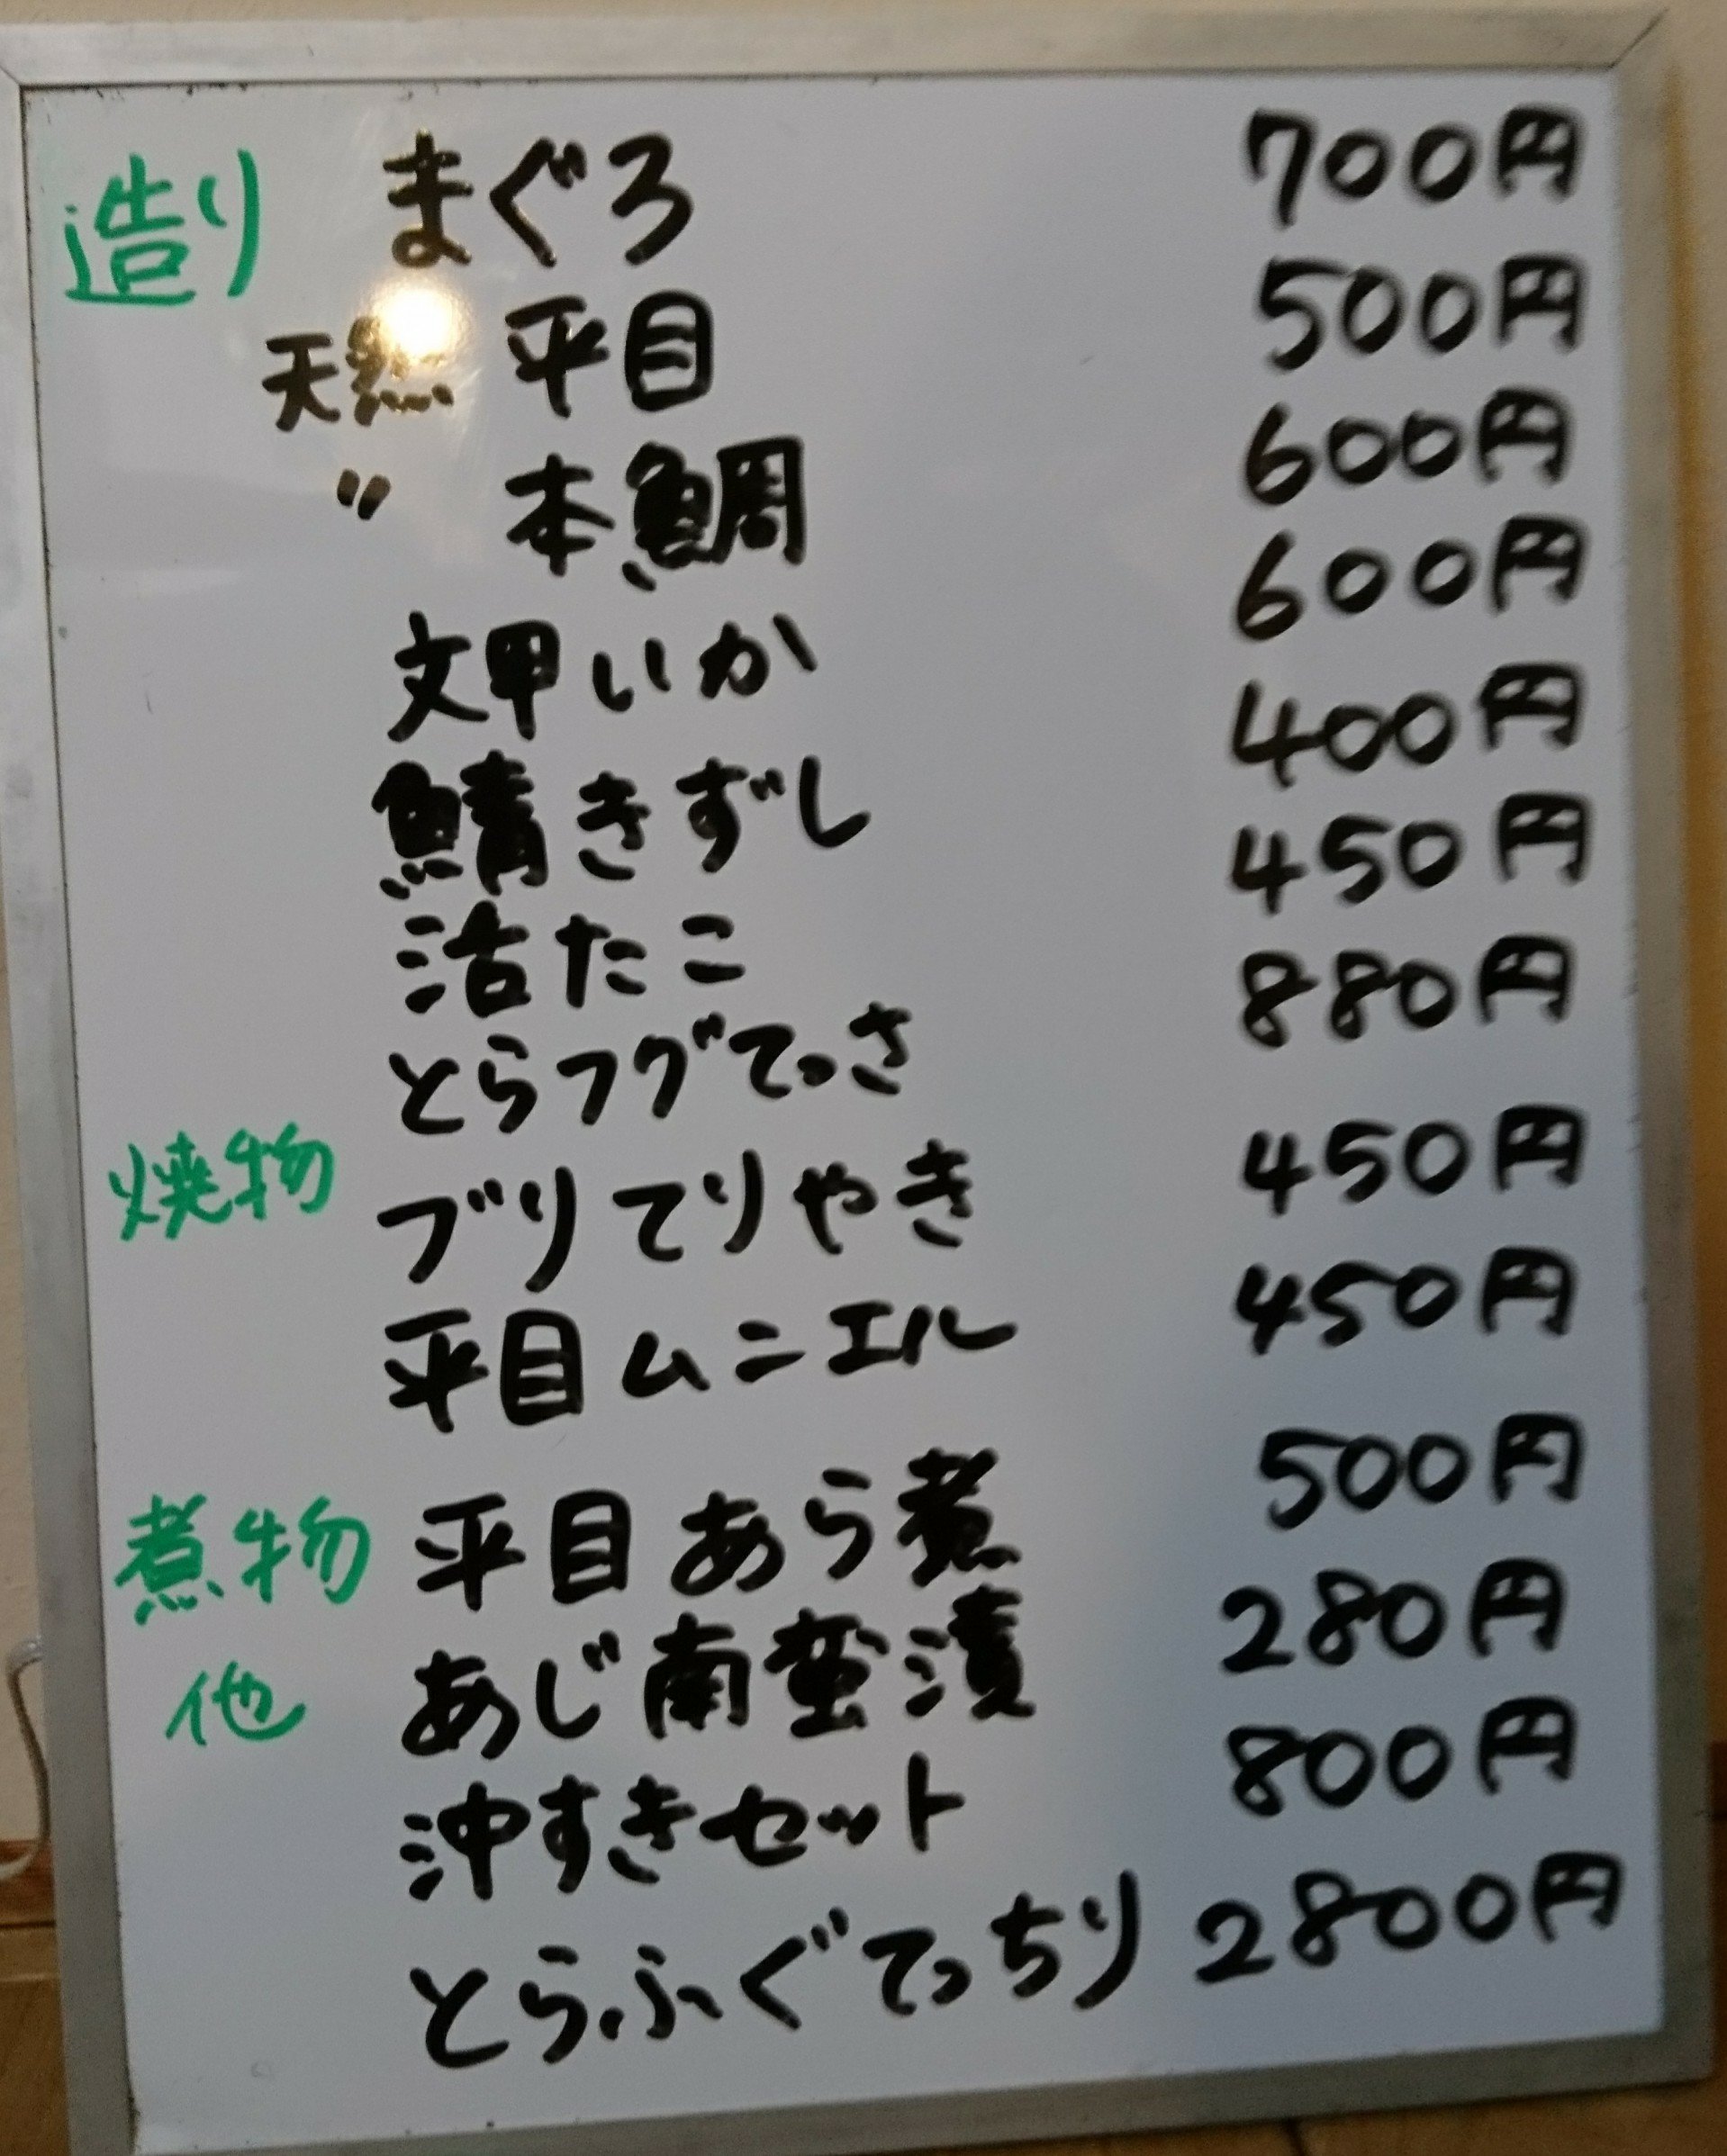 造り まぐろ 700円
天然 平目 500円
〃 本鯛 600円
文甲いか 600円
鯖きずし 400円
活たこ 450円
とらフグてっさ 880円
焼物 ブリてりやき 450円
平目ムニエル 450円
煮物 平目あら煮 500円
他 あじ南蛮漬 280円
沖すきセット 800円
とらふぐてっちり 2800円